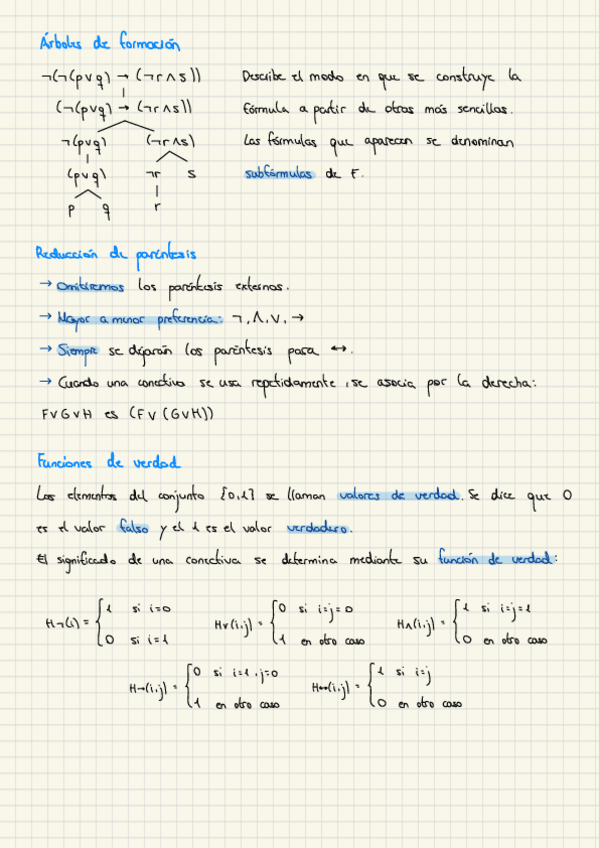 Árboles de formación
¬(¬(p∨q) → (¬r∧s)) Describe el modo en que se construye la
(¬(p∨q) → (¬r∧s)) fórmula a partir de otras más sencillas.
¬(p∨q) (¬r∧s) Las fórmulas que aparecen se denominan
(p∨q) ¬r s subfórmulas de F.
p q r
Reducción de paréntesis
→ Omitiremos los paréntesis externos.
→ Mayor a menor preferencia: ¬, ∧, ∨, →
→ Siempre se dejarán los paréntesis para ↔.
→ Cuando una conectiva se usa repetidamente, se asocia por la derecha:
F∨G∨H es (F∨(G∨H))
Funciones de verdad
Los elementos del conjunto {0,1} se llaman valores de verdad. Se dice que 0
es el valor falso y el 1 es el valor verdadero.
El significado de una conectiva se determina mediante su función de verdad:
H¬(i) = { 1 si i=0 H∨(i,j) = { 0 si i=j=0 H∧(i,j) = { 1 si i=j=1
0 si i=1 1 en otro caso 0 en otro caso
H→(i,j) = { 0 si i=1, j=0 H↔(i,j) = { 1 si i=j
1 en otro caso 0 en otro caso